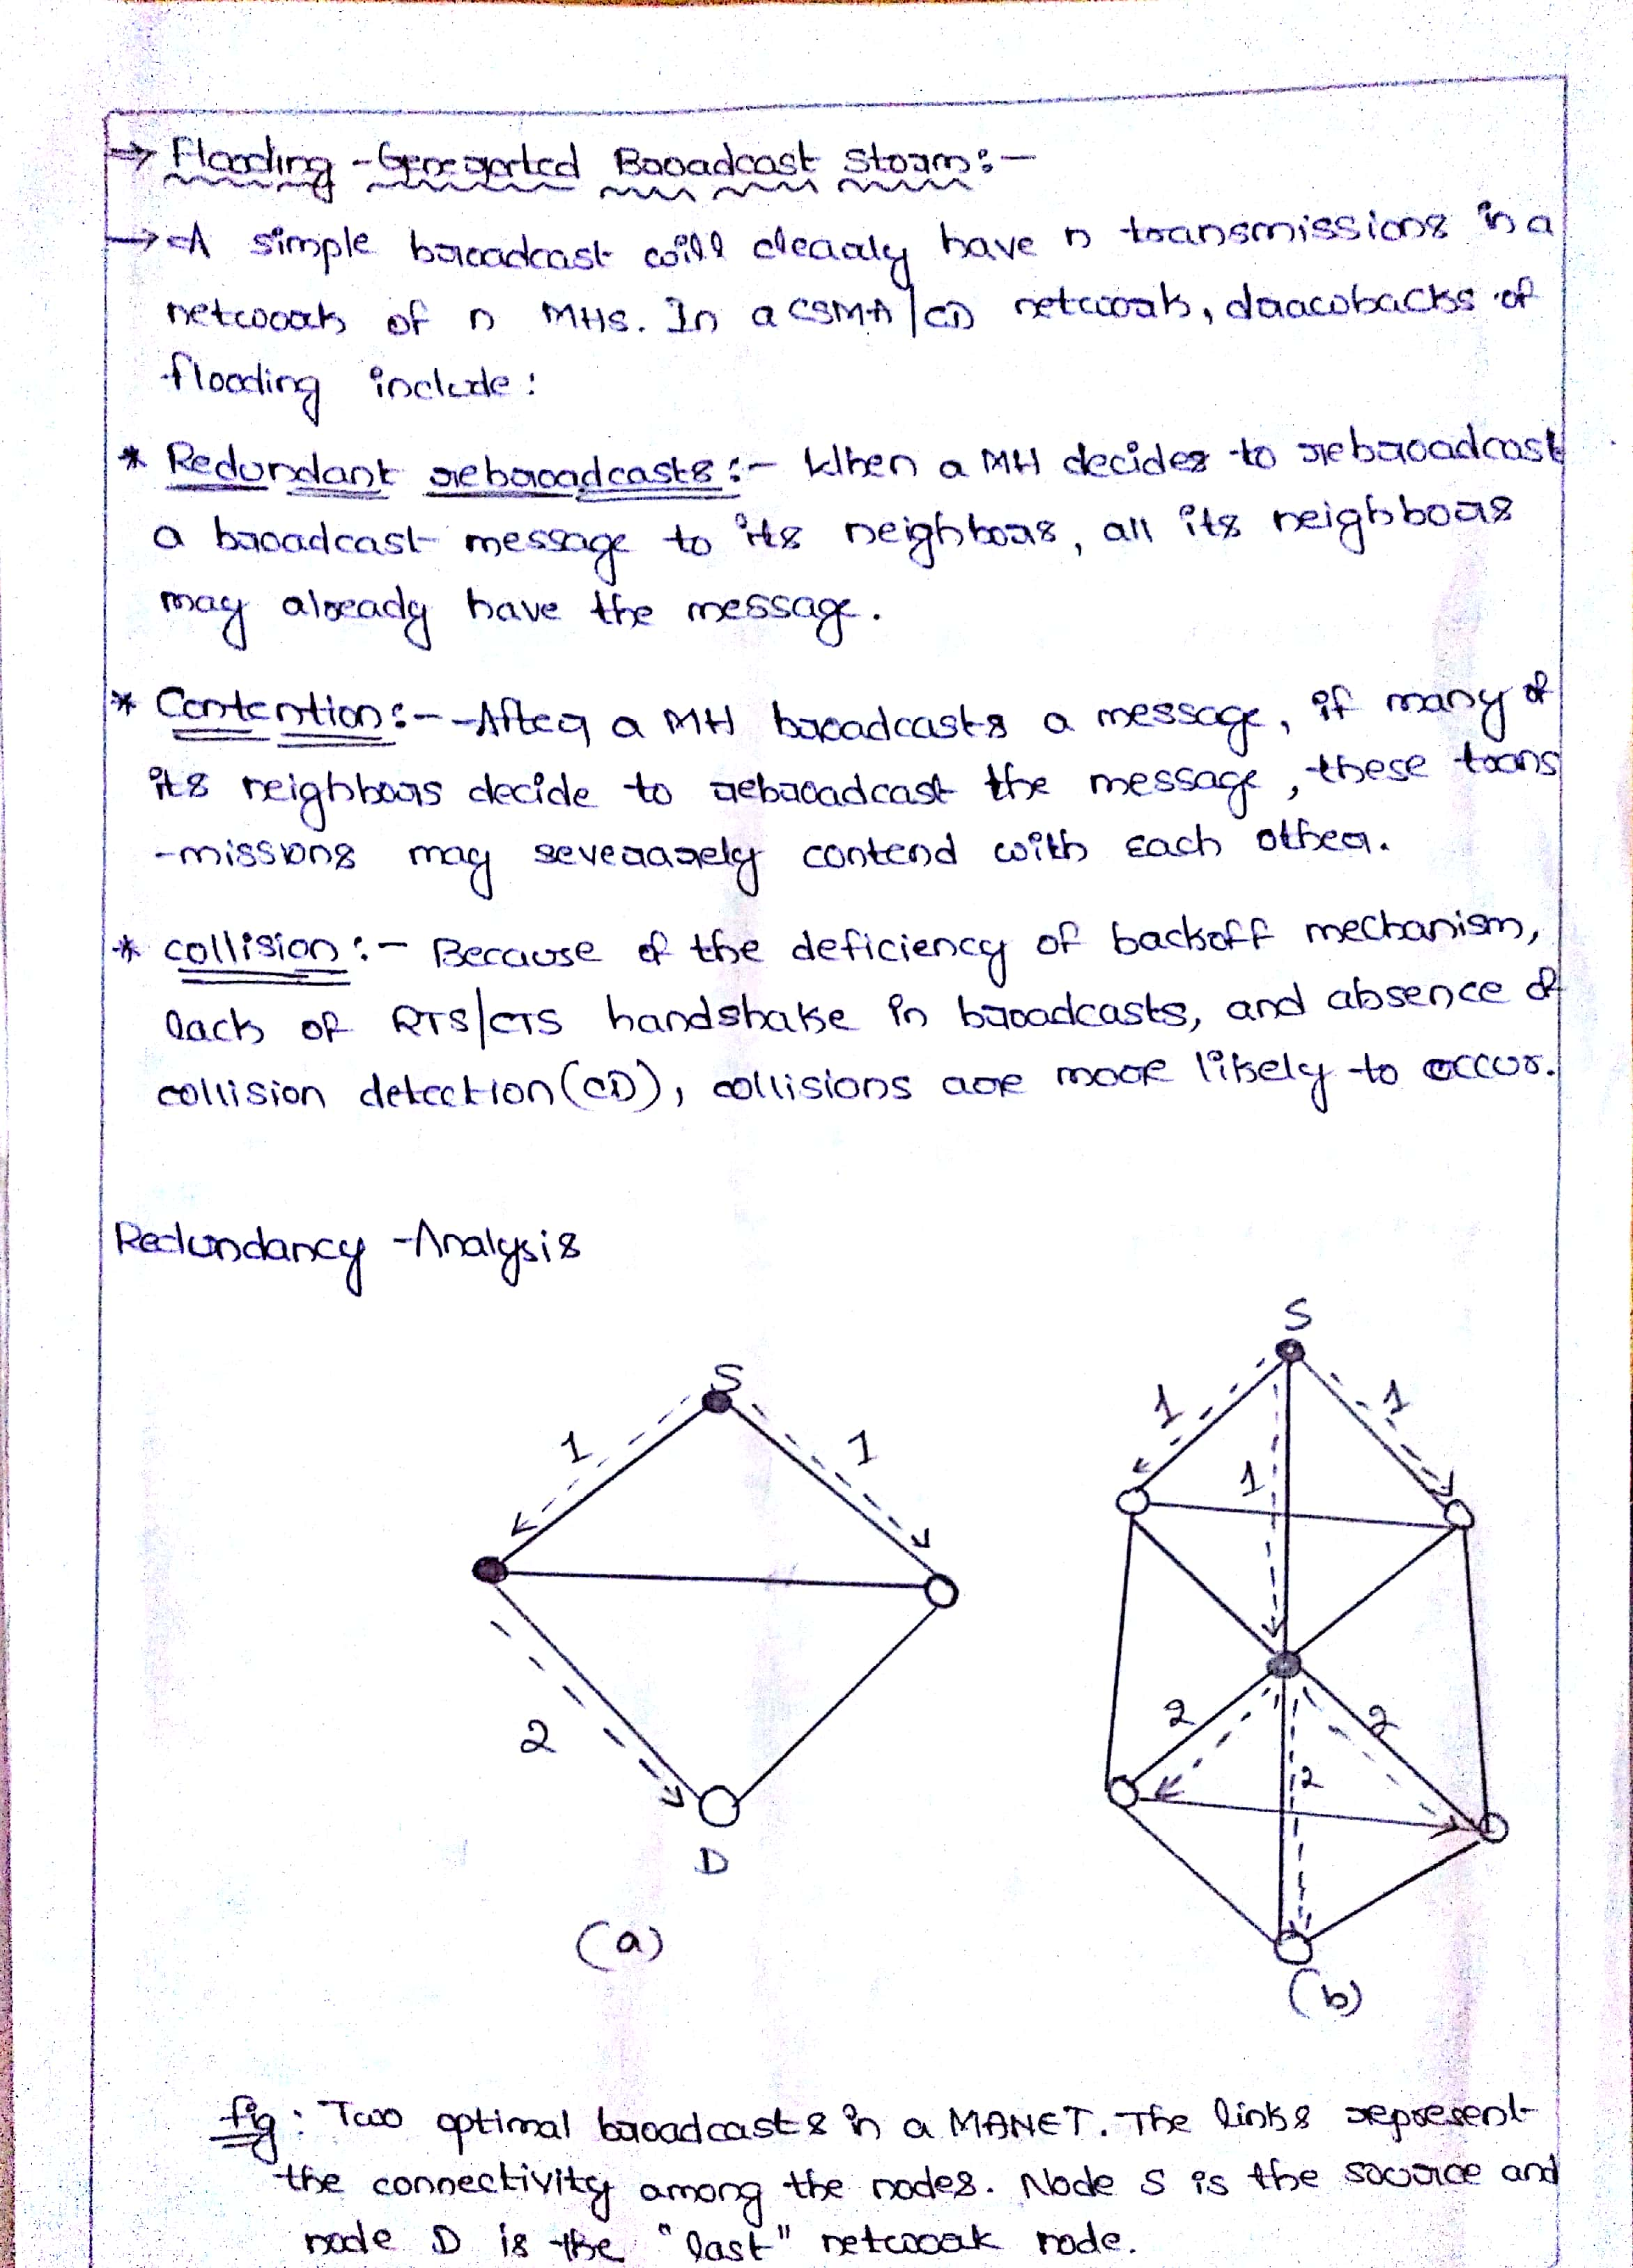 → Flooding -Generated Broadcast Storm:-
→ A simple broadcast will clearly have n transmissions in a
network of n MHs. In a CSMA/CD network, drawbacks of
flooding include:
* Redundant rebroadcasts:- When a MH decides to rebroadcast
a broadcast message to its neighbors, all its neighbors
may already have the message.
* Contention:- -After a MH broadcasts a message, if many of
its neighbors decide to rebroadcast the message, these trans
-missions may severarely contend with each other.
* collision:- Because of the deficiency of backoff mechanism,
lack of RTS/CTS handshake in broadcasts, and absence of
collision detection(CD), collisions are more likely to occur.
Redundancy -Analysis
S
1 1
2
D
(a)
S
1 1
1
2 2
2
(b)
fig: Two optimal broadcasts in a MANET. The links represent
the connectivity among the nodes. Node S is the source and
node D is the "last" network node.